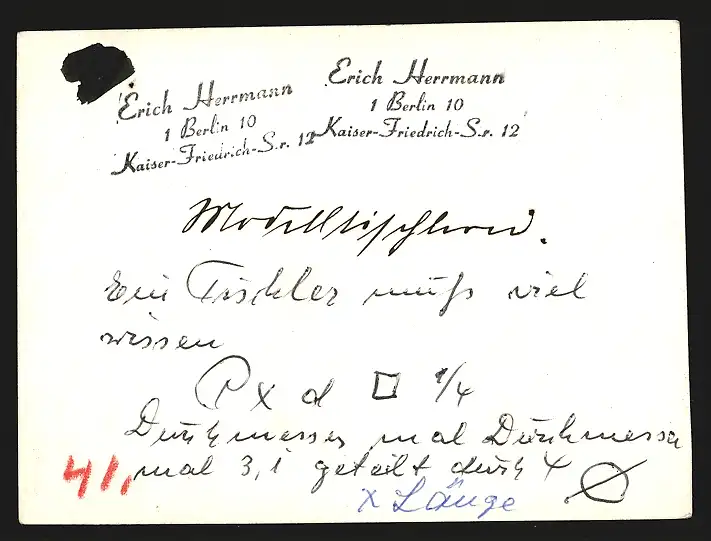 Erich Herrmann
1 Berlin 10
Kaiser-Friedrich-S.r. 12
Erich Herrmann
1 Berlin 10
Kaiser-Friedrich-S.r. 12
Modelltischlerei.
Ein Tischler muß viel
wissen
x d □ 1/4
Durchmesser mal Durchmesser
mal 3,1 geteilt durch 4 Ø
x Länge
41,